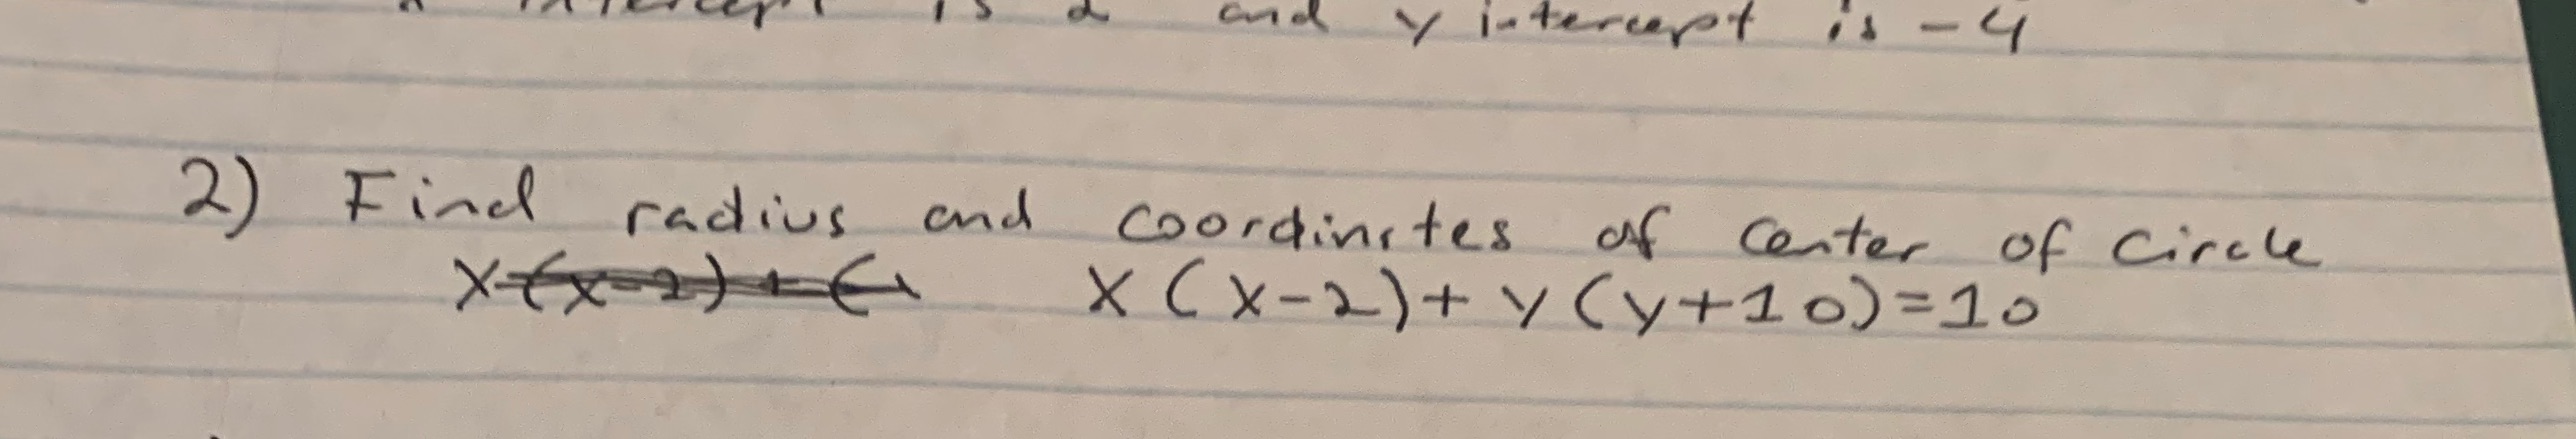 x intercept is 2 and y intercept is -4
2) Find radius and coordinates of center of circle
x(x-2)+y(y+10)=10